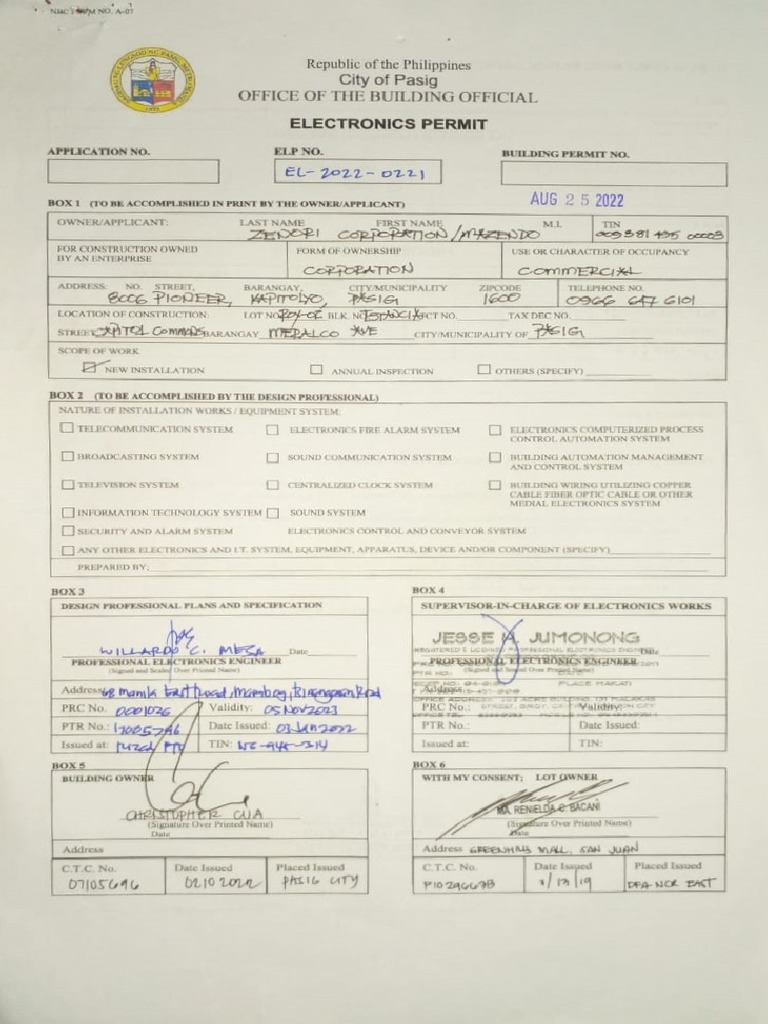 NBC FORM NO. A-07
Republic of the Philippines
City of Pasig
OFFICE OF THE BUILDING OFFICIAL
ELECTRONICS PERMIT
APPLICATION NO. ELP NO. BUILDING PERMIT NO.
EL-2022-0221
AUG 25 2022
BOX 1 (TO BE ACCOMPLISHED IN PRINT BY THE OWNER/APPLICANT)
OWNER/APPLICANT: LAST NAME FIRST NAME M.I. TIN
ZENORI CORPORATION/MAZENDO
FOR CONSTRUCTION OWNED BY AN ENTERPRISE FORM OF OWNERSHIP USE OR CHARACTER OF OCCUPANCY
CORPORATION COMMERCIAL
ADDRESS: NO. STREET, BARANGAY, CITY/MUNICIPALITY ZIPCODE TELEPHONE NO.
8006 PIONEER, KAPITOLYO, PASIG 1600 0966 647 6101
LOCATION OF CONSTRUCTION: LOT NO. BLK. NO. TCT NO. TAX DEC NO.
STREET CAPITOL COMMONS BARANGAY MERALCO AVE CITY/MUNICIPALITY OF PASIG
SCOPE OF WORK
NEW INSTALLATION ANNUAL INSPECTION OTHERS (SPECIFY)
BOX 2 (TO BE ACCOMPLISHED BY THE DESIGN PROFESSIONAL)
NATURE OF INSTALLATION WORKS / EQUIPMENT SYSTEM:
TELECOMMUNICATION SYSTEM ELECTRONICS FIRE ALARM SYSTEM ELECTRONICS COMPUTERIZED PROCESS CONTROL AUTOMATION SYSTEM
BROADCASTING SYSTEM SOUND COMMUNICATION SYSTEM BUILDING AUTOMATION MANAGEMENT AND CONTROL SYSTEM
TELEVISION SYSTEM CENTRALIZED CLOCK SYSTEM BUILDING WIRING UTILIZING COPPER CABLE FIBER OPTIC CABLE OR OTHER MEDIAL ELECTRONICS SYSTEM
INFORMATION TECHNOLOGY SYSTEM SOUND SYSTEM
SECURITY AND ALARM SYSTEM ELECTRONICS CONTROL AND CONVEYOR SYSTEM
ANY OTHER ELECTRONICS AND I.T. SYSTEM, EQUIPMENT, APPARATUS, DEVICE AND/OR COMPONENT (SPECIFY)
PREPARED BY:
BOX 3
DESIGN PROFESSIONAL PLANS AND SPECIFICATION
WILLARDO C. MESA Date
PROFESSIONAL ELECTRONICS ENGINEER
(Signed and Sealed Over Printed Name)
Address 68 Manila East Road,
PRC No. 0001026 Validity: 05 Nov 2023
PTR No.: Date Issued: 03 Jan 2022
Issued at: TIN:
BOX 4
SUPERVISOR-IN-CHARGE OF ELECTRONICS WORKS
JESSE A. JUMONONG
Date
PROFESSIONAL ELECTRONICS ENGINEER
(Signed and Sealed Over Printed Name)
Address
PRC No.: Validity:
PTR No.: Date Issued:
Issued at: TIN:
BOX 5
BUILDING OWNER
CHRISTOPHER CUA
(Signature Over Printed Name)
Date
Address
C.T.C. No. Date Issued Placed Issued
07105696 02102022 PASIG CITY
BOX 6
WITH MY CONSENT; LOT OWNER
MA. RENIELDA C. BACANI
(Signature Over Printed Name)
Date
Address GREENHILLS MALL, SAN JUAN
C.T.C. No. Date Issued Placed Issued
DFA NCR EAST